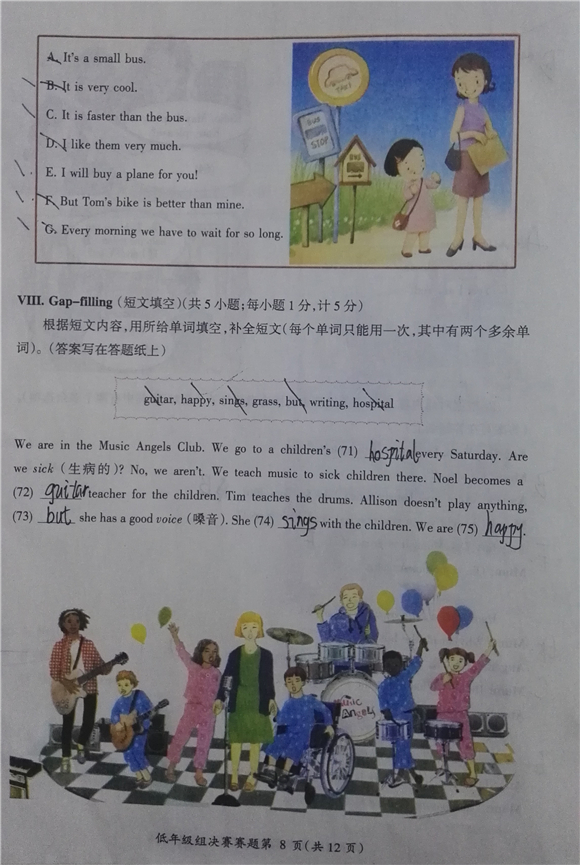 A. It's a small bus.
B. It is very cool.
C. It is faster than the bus.
D. I like them very much.
E. I will buy a plane for you!
F. But Tom's bike is better than mine.
G. Every morning we have to wait for so long.
TAXI
BUS
STOP
BUS
VIII. Gap-filling (短文填空)(共5小题;每小题1分,计5分)
根据短文内容,用所给单词填空,补全短文(每个单词只能用一次,其中有两个多余单
词)。(答案写在答题纸上)
guitar, happy, sings, grass, but, writing, hospital
We are in the Music Angels Club. We go to a children's (71) hospital every Saturday. Are
we sick (生病的)? No, we aren't. We teach music to sick children there. Noel becomes a
(72) guitar teacher for the children. Tim teaches the drums. Allison doesn't play anything,
(73) but she has a good voice (嗓音). She (74) sings with the children. We are (75) happy.
Music
Angels
低年级组决赛赛题第 8 页(共 12 页)